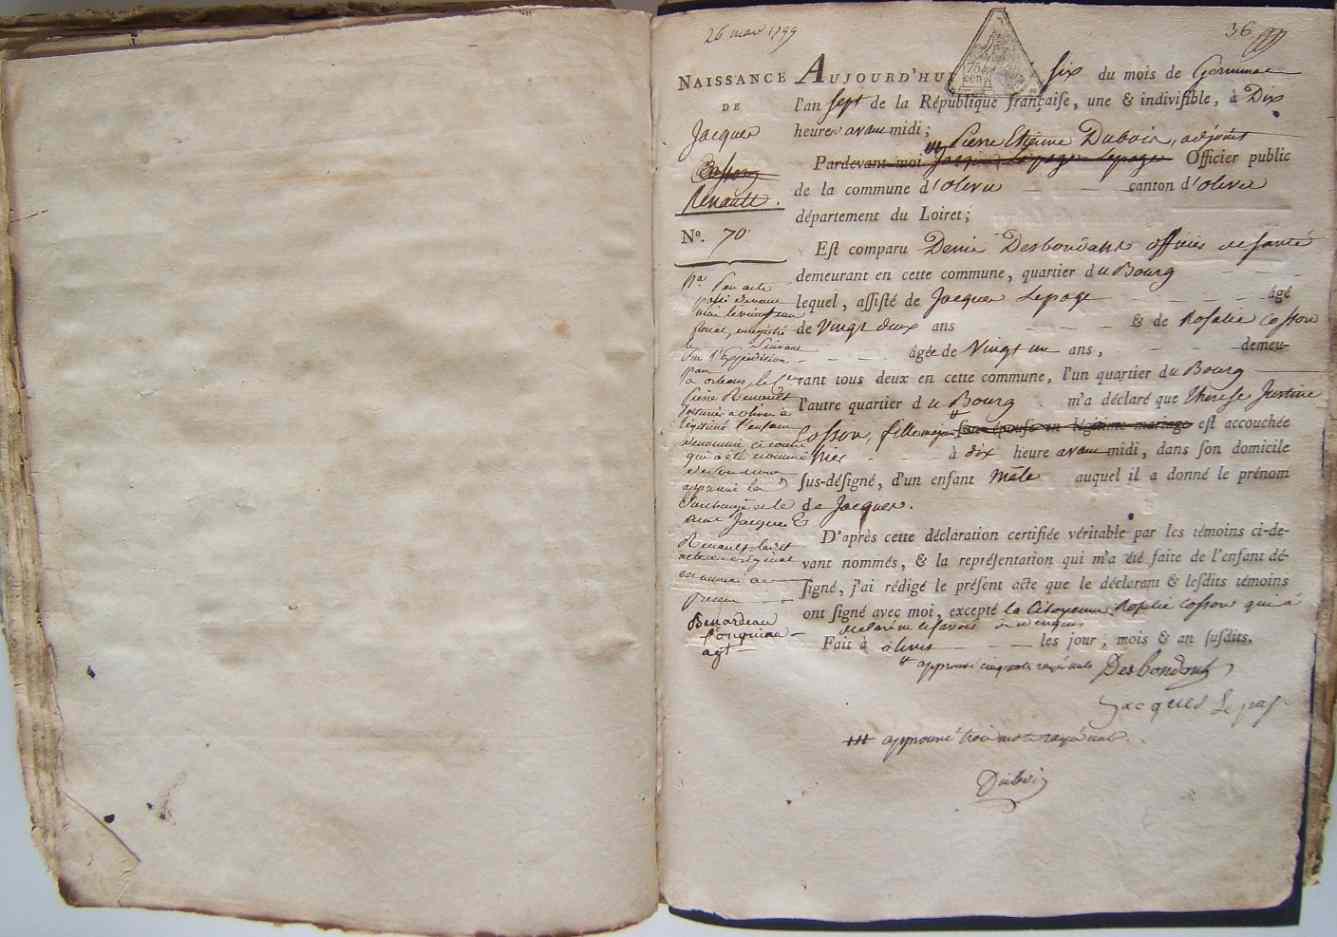 26 mars 1799
36
NAISSANCE
DE
Jacques
Cosson
Renault.
N°. 70
par acte
passé devant
floréal, enregistré
le suivant
dont l'expédition
a orleans, le Cen
Pierre Renault
à olivet à
légitimé l'enfant
dénommé ci contre
qui a été nommé
Jacques
Renault
en marge
Benardeau
agt
AUJOURD'HUI six du mois de Germinal
l'an sept de la République françaiſe, une & indiviſible, à Dix
heures avant midi;
Pierre Etienne Dubois, adjoint
Pardevant moi Jacques Lepage Lepage Officier public
de la commune d'olivet canton d'olivet
département du Loiret;
Eſt comparu Denis Desbondants officier de ſanté
demeurant en cette commune, quartier du Bourg
lequel, aſſiſté de Jacques Lepage âgé
de vingt deux ans & de Rosalie Cosson
âgée de Vingt un ans, demeu-
rant tous deux en cette commune, l'un quartier du Bourg
l'autre quartier du Bourg m'a déclaré que Therese Justine
Cosson, fille majeure ſon épouſe en légitime mariage eſt accouchée
hier à dix heure avant midi, dans ſon domicile
ſus-déſigné, d'un enfant Mâle auquel il a donné le prénom
de Jacques.
D'après cette déclaration certifiée véritable par les témoins ci-de-
vant nommés, & la repréſentation qui m'a été faite de l'enfant dé-
ſigné, j'ai rédigé le préſent acte que le déclarant & leſdits témoins
ont ſigné avec moi, excepté la Citoyenne Rosalie Cosson qui a
déclaré ne le savoir
Fait à olivet les jour, mois & an ſuſdits.
# approuvé cinq mots rayés nuls Desbondants
Jacques Lepage
### approuvé trois mots rayés nuls.
Dubois